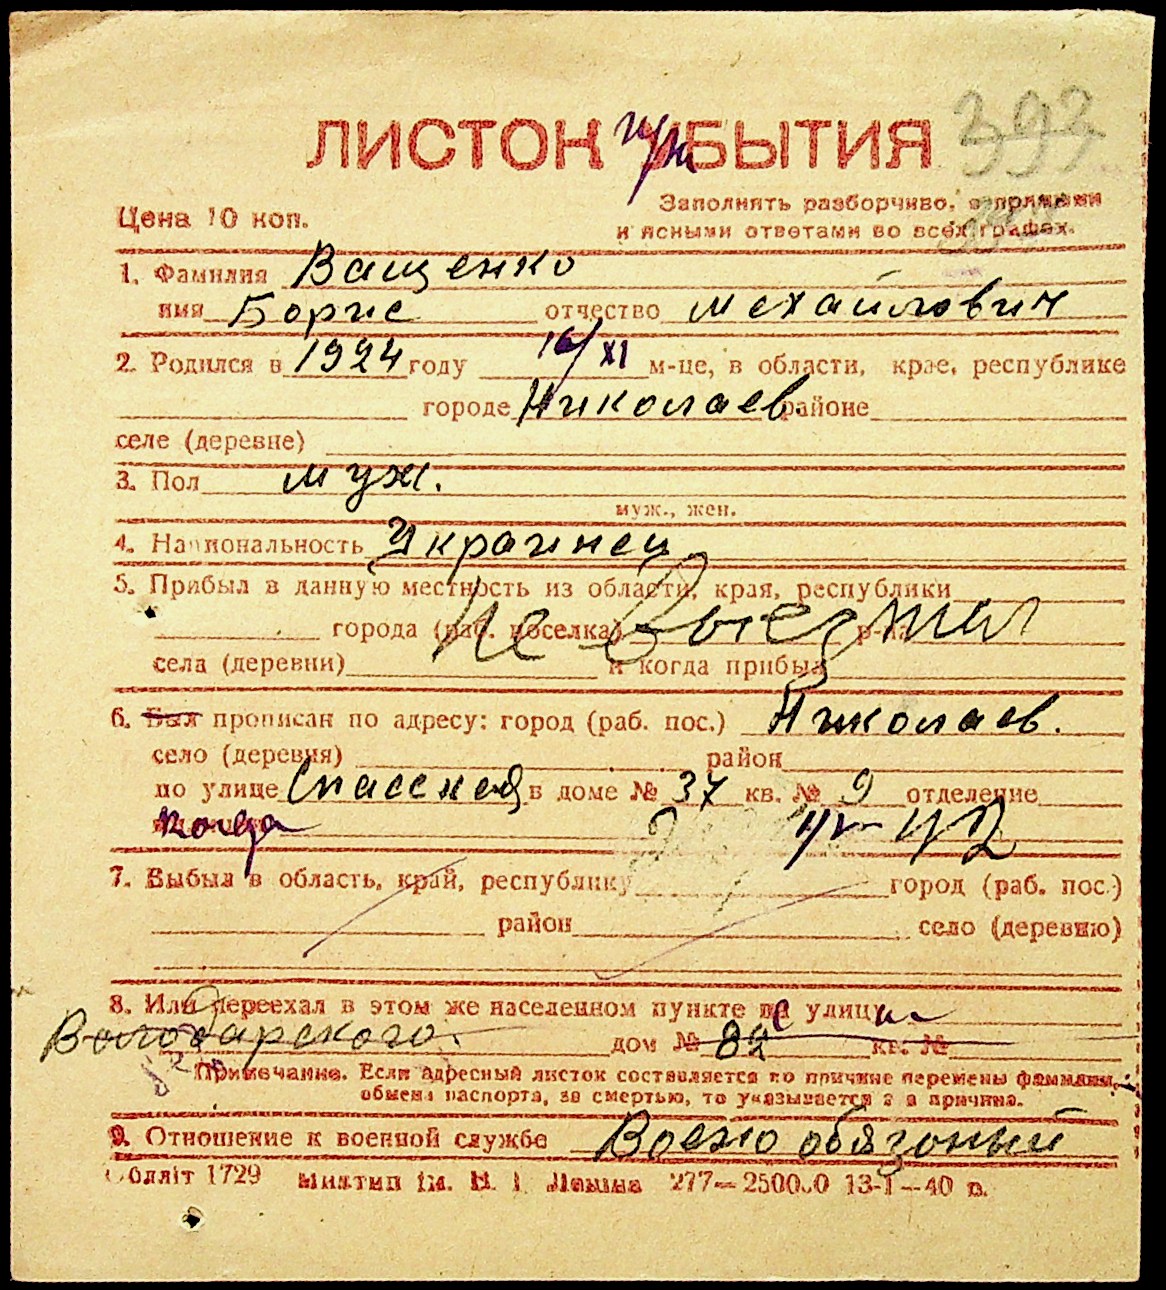 393
ЛИСТОК при БЫТИЯ
Цена 10 коп.
Заполнять разборчиво, с прямыми
и ясными ответами во всех графах.
1. Фамилия Ващенко
имя Борис отчество Михайлович
2. Родился в 1924 году 16/XI м-це, в области, крае, республике
городе Николаев районе
селе (деревне)
3. Пол муж.
муж., жен.
4. Национальность Украинец
5. Прибыл в данную местность из области, края, республики
города (раб. поселка) р-на
не выезжал
села (деревни) и когда прибыл
6. Был прописан по адресу: город (раб. пос.) Николаев.
село (деревня) район
по улице Спасской в доме № 37 кв. № 9 отделение
когда
7. Выбыл в область, край, республику город (раб. пос.)
район село (деревню)
8. Или переехал в этом же населенном пункте с улицы
Володарского. дом № 82 кв. №
Примечание. Если адресный листок составляется по причине перемены фамилии,
обмена паспорта, за смертью, то указывается эта причина.
9. Отношение к военной службе Военообязоный
Обллiт 1729 277—250000 13-I—40 р.